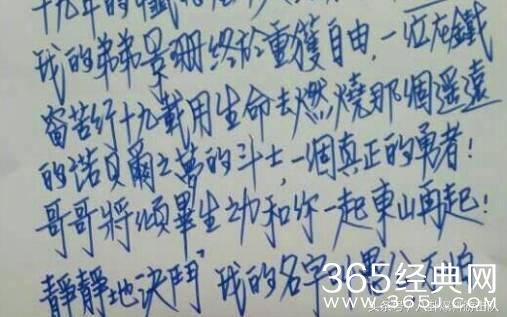 十九年的
我的弟弟景珊終於重獲自由,一位在鐵
窗苦行十九載用生命去燃燒那個遥遠
的諾貝爾之夢的斗士,一個真正的勇者!
哥哥將傾畢生之功和你一起東山再起!
靜靜地決鬥"我的名字
365经典网
365jz.com